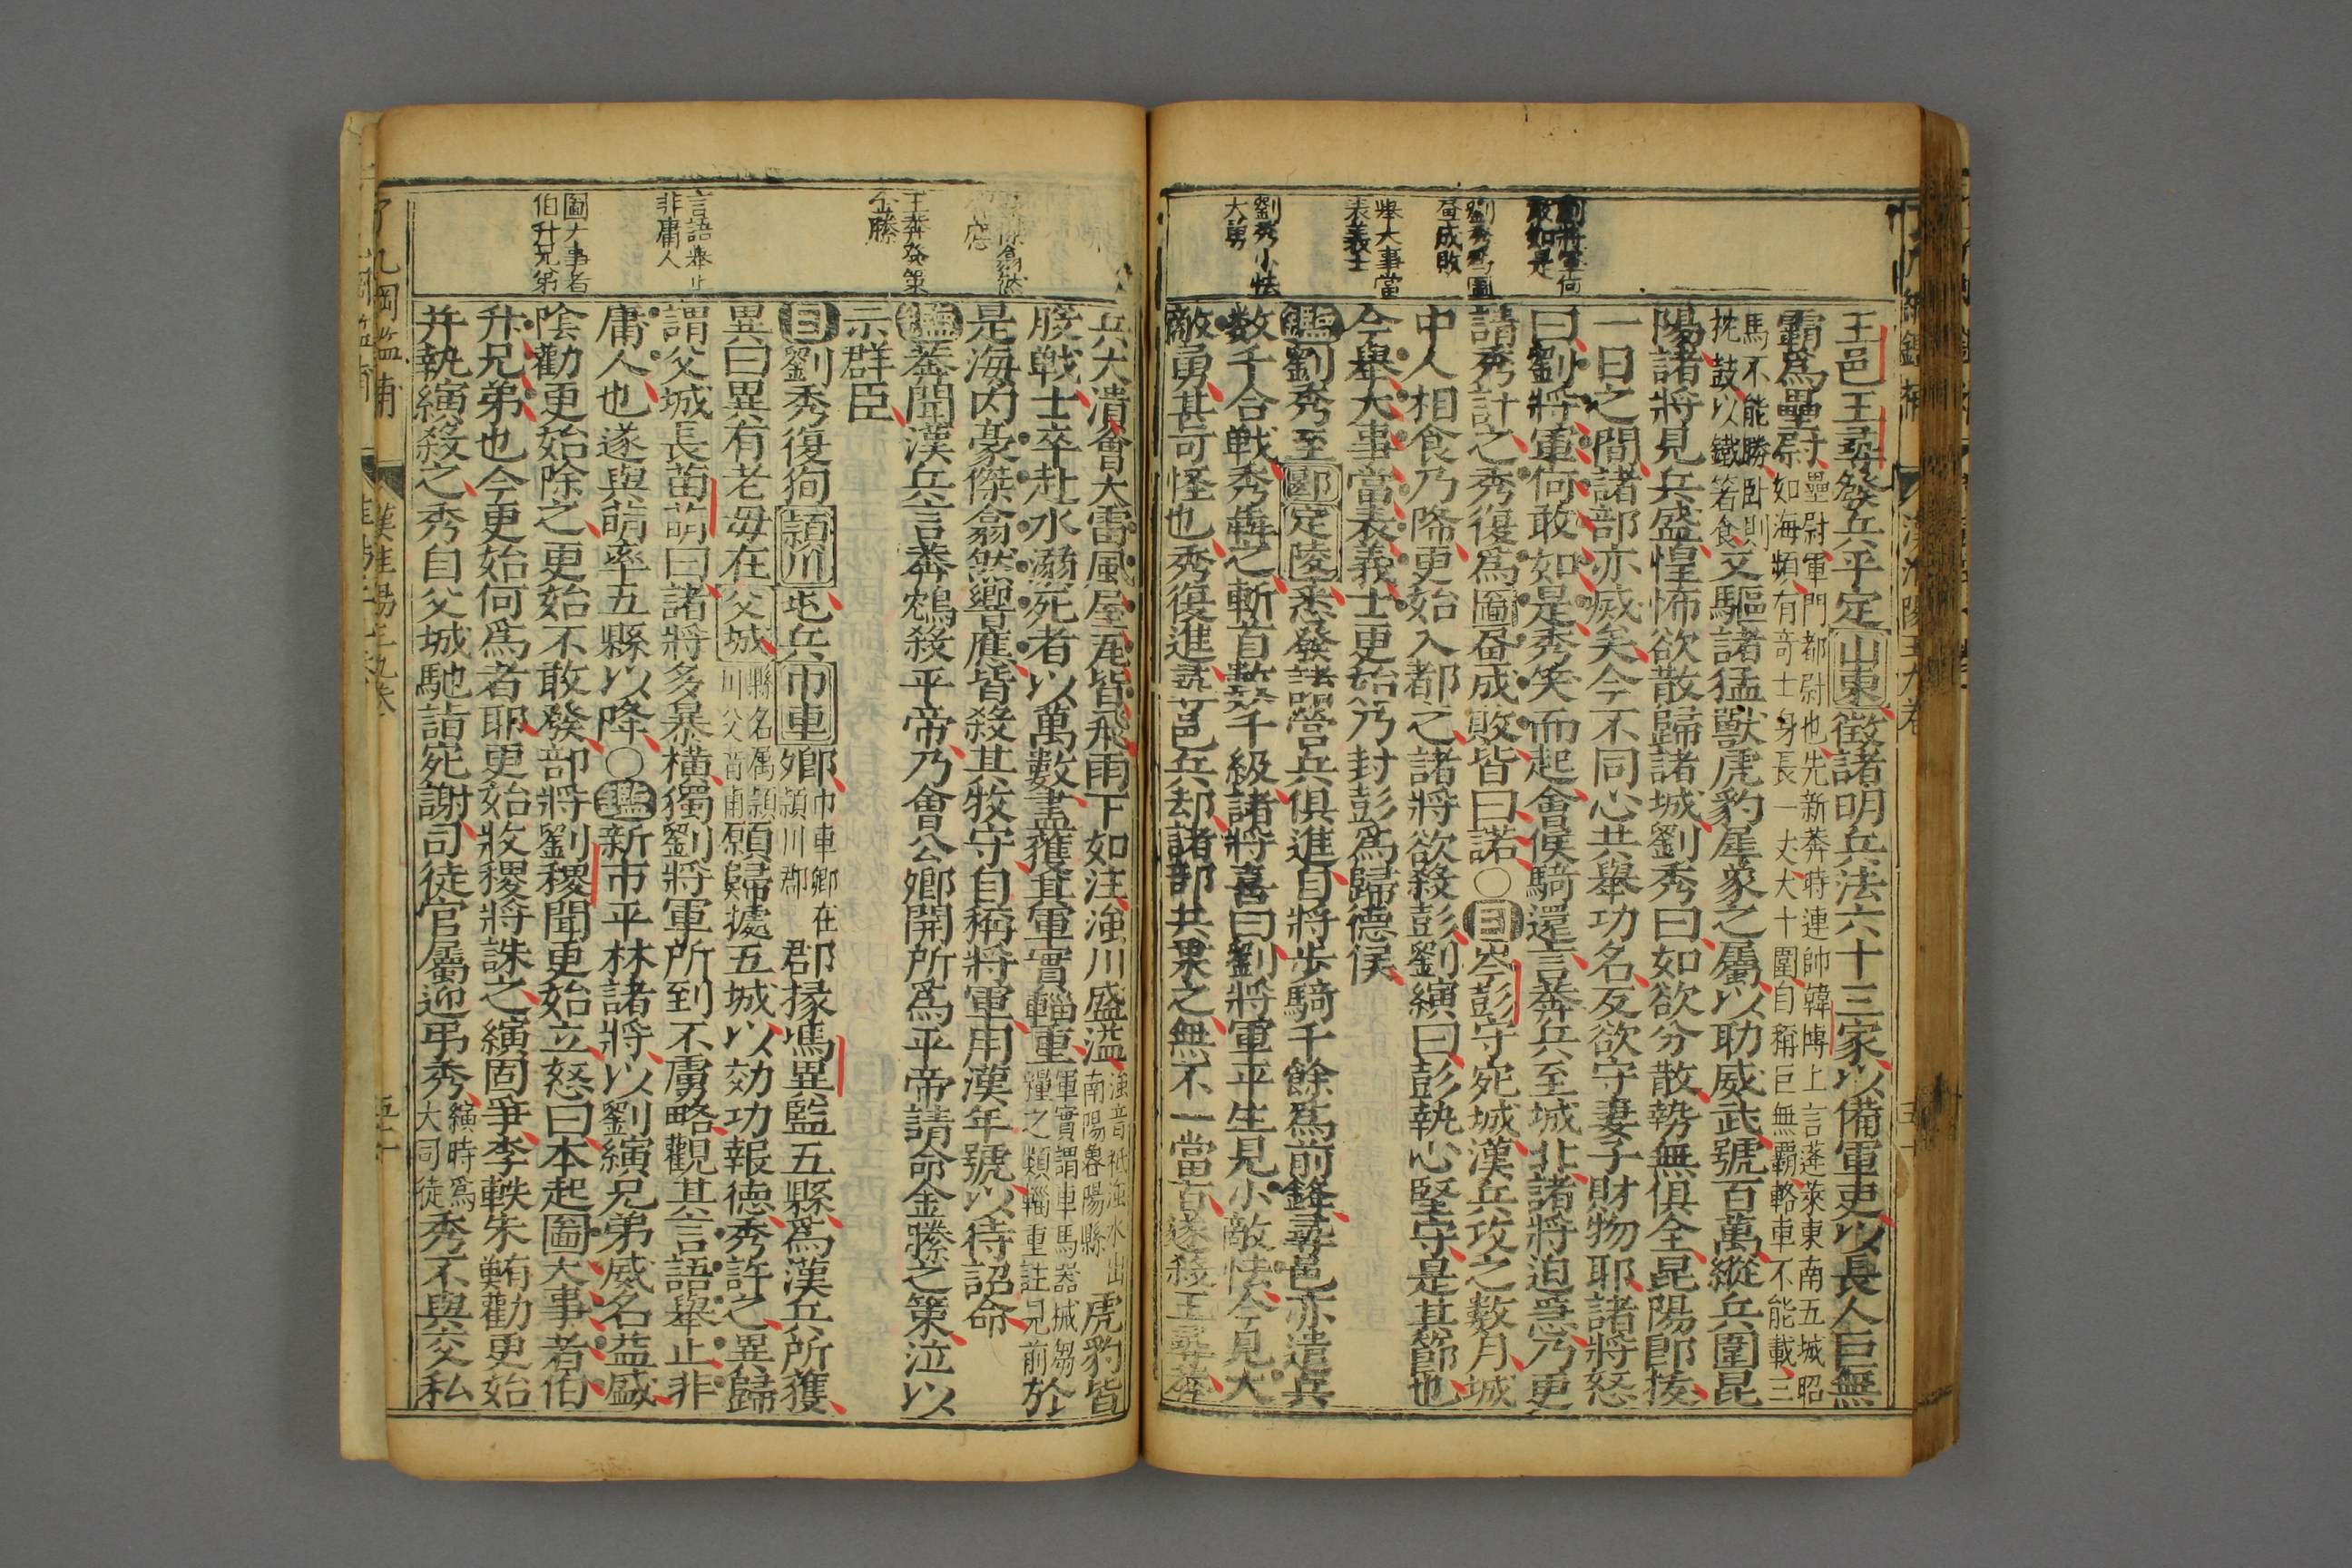 王邑王尋發兵平定山東徵諸明兵法六十三家以備軍吏以長人巨無
霸爲壘尉壘尉軍門都尉也先新莽時連帥韓博上言蓬萊東南五城昭
如海頻有奇士身長一丈大十圍自稱巨無霸輅車不能載三
馬不能勝臥則
枕鼓以鐵箸食又驅諸猛獸虎豹犀象之屬以助威武號百萬縱兵圍昆
陽諸將見兵盛惶怖欲散歸諸城劉秀曰如欲分散勢無俱全昆陽卽拔
一日之間諸部亦滅矣今不同心共舉功名反欲守妻子財物耶諸將怒
曰劉將軍何敢如是秀笑而起會候騎還言莽兵至城北諸將迫急乃更
請秀計之秀復爲圖畫成敗皆曰諾○目岑彭守宛城漢兵攻之數月城
中人相食乃降更始入都之諸將欲殺彭劉縯曰彭執心堅守是其節也
今舉大事當表義士更始乃封彭爲歸德侯
鑑劉秀至郾定陵悉發諸營兵俱進自將步騎千餘爲前鋒尋邑亦遣兵
数千合戰秀犇之斬首數十級諸將喜曰劉將軍平生見小敵怯今見大
敵勇甚可怪也秀復進尋邑兵却諸部共乗之無不一當百遂殺王尋莽
劉將軍何
敢如是
劉秀爲圖
畫成敗
舉大事當
表義士
劉秀小怯
大勇
兵大潰會大雷風屋瓦皆飛雨下如注滍川盛溢滍音祗滍水出
南陽魯陽縣虎豹皆
股戰士卒赴水溺死者以萬數盡獲其軍實輜重軍實謂車馬器城芻
糧之類輜重註見前於
是海内豪傑翕然響應皆殺其牧守自稱將軍用漢年號以待詔命
鑑莽聞漢兵言莽鴆殺平帝乃會公卿開所爲平帝請命金縢之策泣以
示群臣
目劉秀復徇頴川屯兵巾車鄉巾車鄉在
頴川郡郡掾馮異監五縣爲漢兵所獲
異曰異有老母在父城縣名属頴
川父音甫願歸據五城以効功報德秀許之異歸
謂父城長苗萌曰諸將多暴橫獨劉將軍所到不虜略觀其言語舉止非
庸人也遂與萌率五縣以降○鑑新市平林諸將以劉縯兄弟威名益盛
陰勸更始除之更始不敢發部將劉稷聞更始立怒曰本起圖大事者伯
升兄弟也今更始何爲者耶更始收稷將誅之縯固爭李軼朱鮪勸更始
并執縯殺之秀自父城馳詣宛謝司徒官屬迎弔秀縯時爲
大司徒秀不與交私
豪傑翕然
響應
王莽發策
金縢
言語舉止
非庸人
圖大事者
伯升兄弟